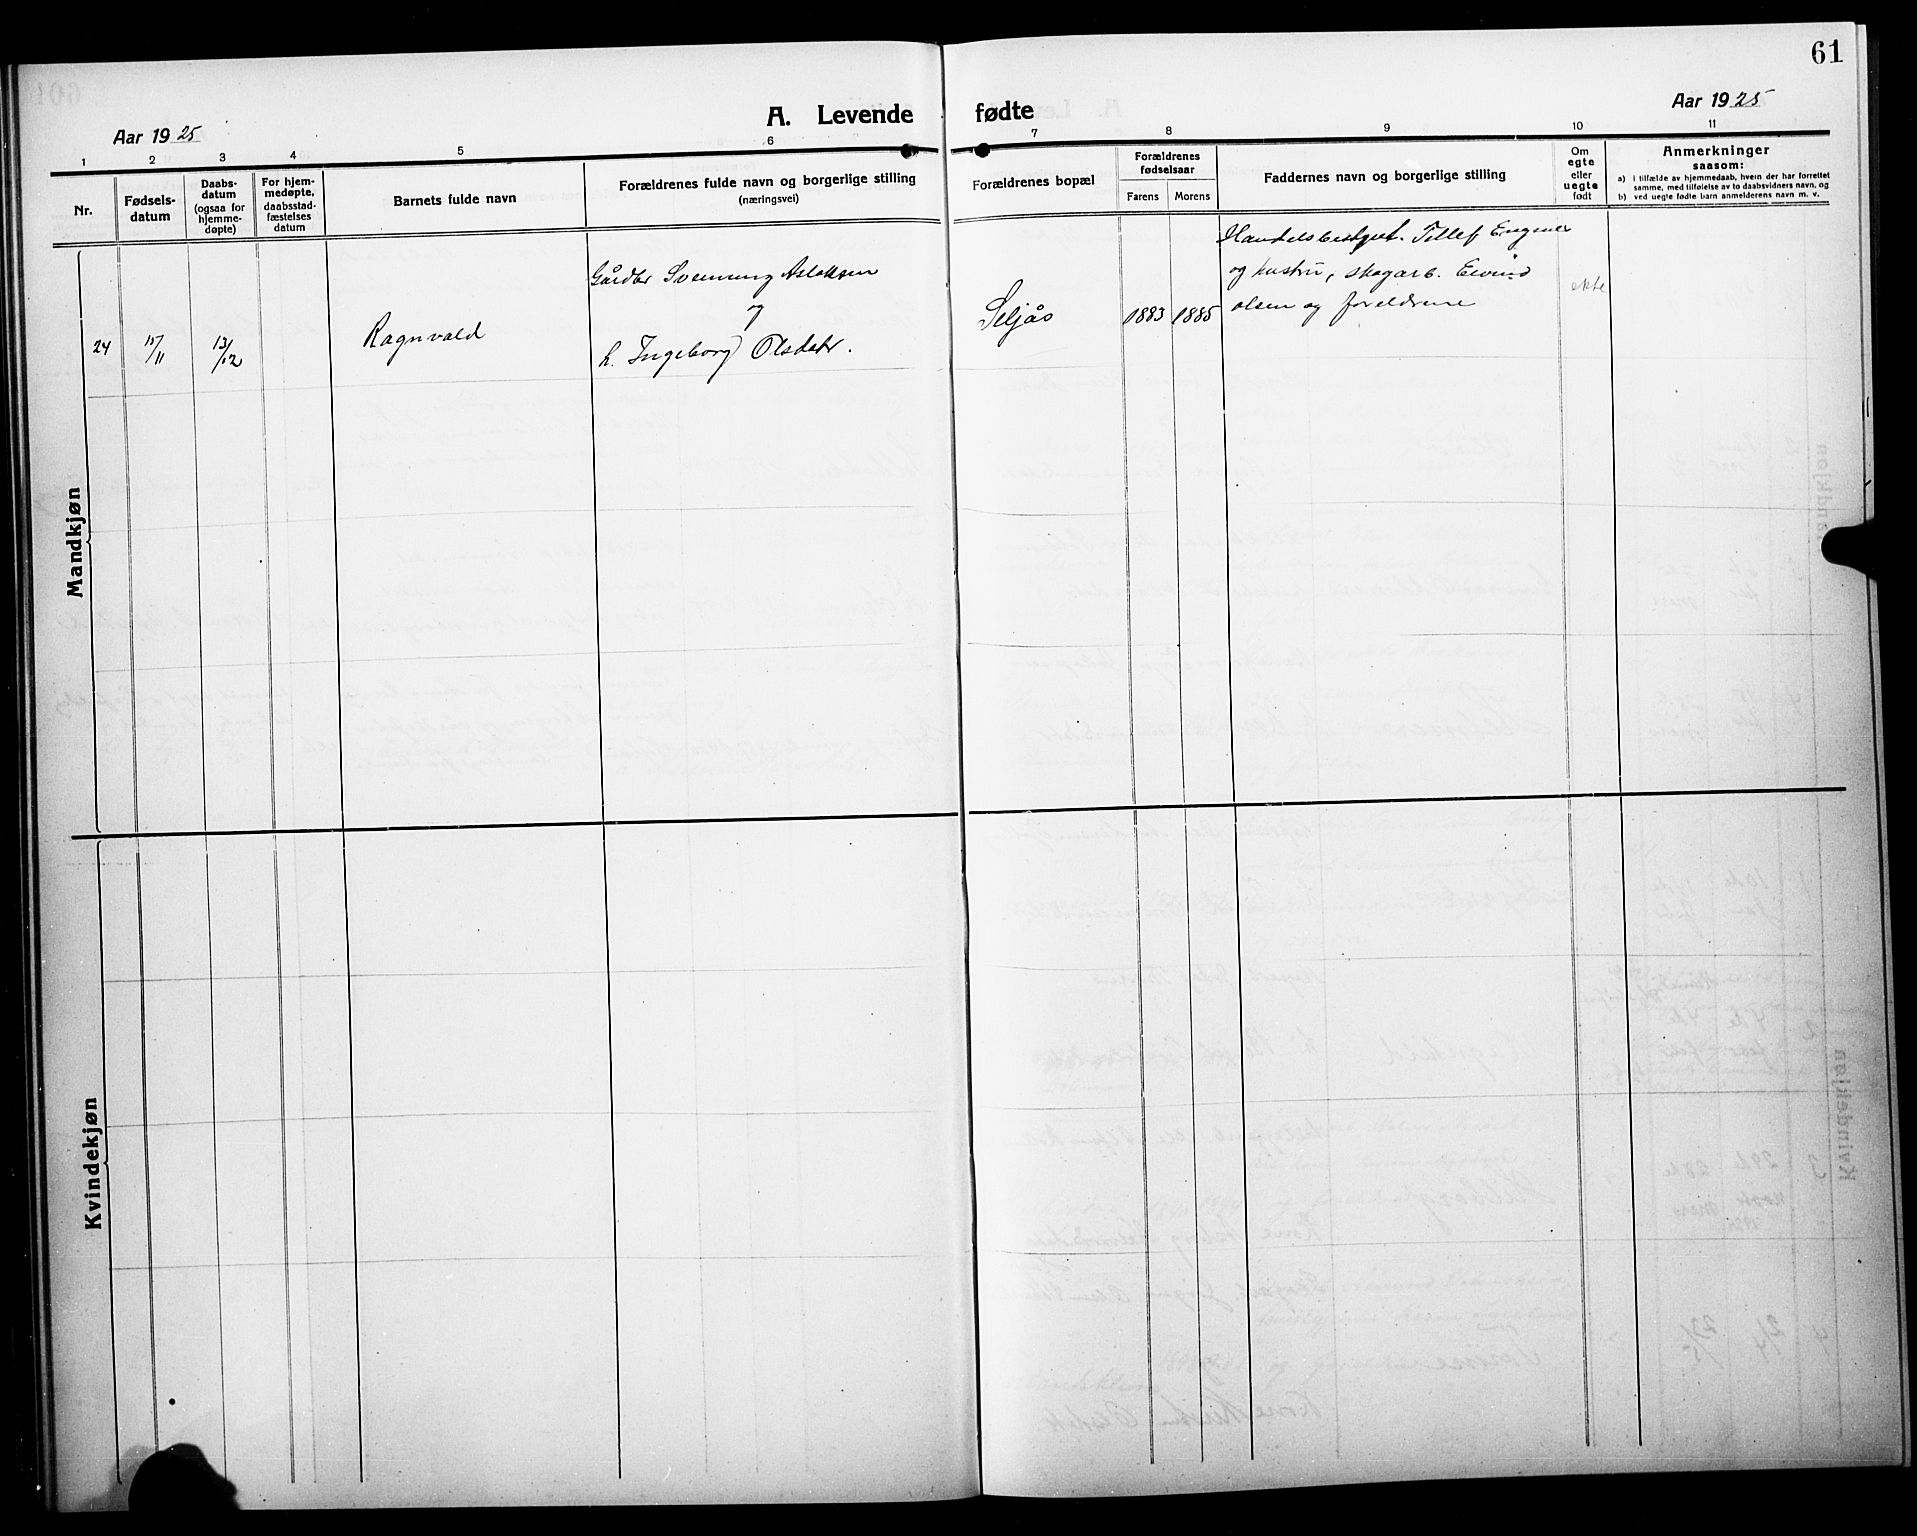 61
Aar 1925
A. Levende fødte
Aar 1925
1 2 3 4 5 6 7 8 9 10 11
Nr.
Fødsels-
datum
Daabs-
datum
(ogsaa for
hjemme-
døpte)
For hjem-
medøpte,
daabsstad-
fæstelses
datum
Barnets fulde navn
Forældrenes fulde navn og borgerlige stilling
(næringsvei)
Forældrenes bopæl
Forældrenes
fødselsaar
Farens Morens
Faddernes navn og borgerlige stilling
Om
egte
eller
uegte
født
Anmerkninger
saasom:
a) i tilfælde av hjemmedaab, hvem der har forrettet
samme, med tilføielse av to daabsvidners navn, og
b) ved uegte fødte barn anmelderens navn m. v.
Mandkjøn
24
15/11
13/12
Ragnvald
Gårdbr Svenung Aslaksen
og
h. Ingeborg Olsdatr.
Seljås
1883 1885
Handelsbestyrer. Tellef
og hustru, skogarb. Eivind
olsen og foreldrene
ekte
Kvindekjøn